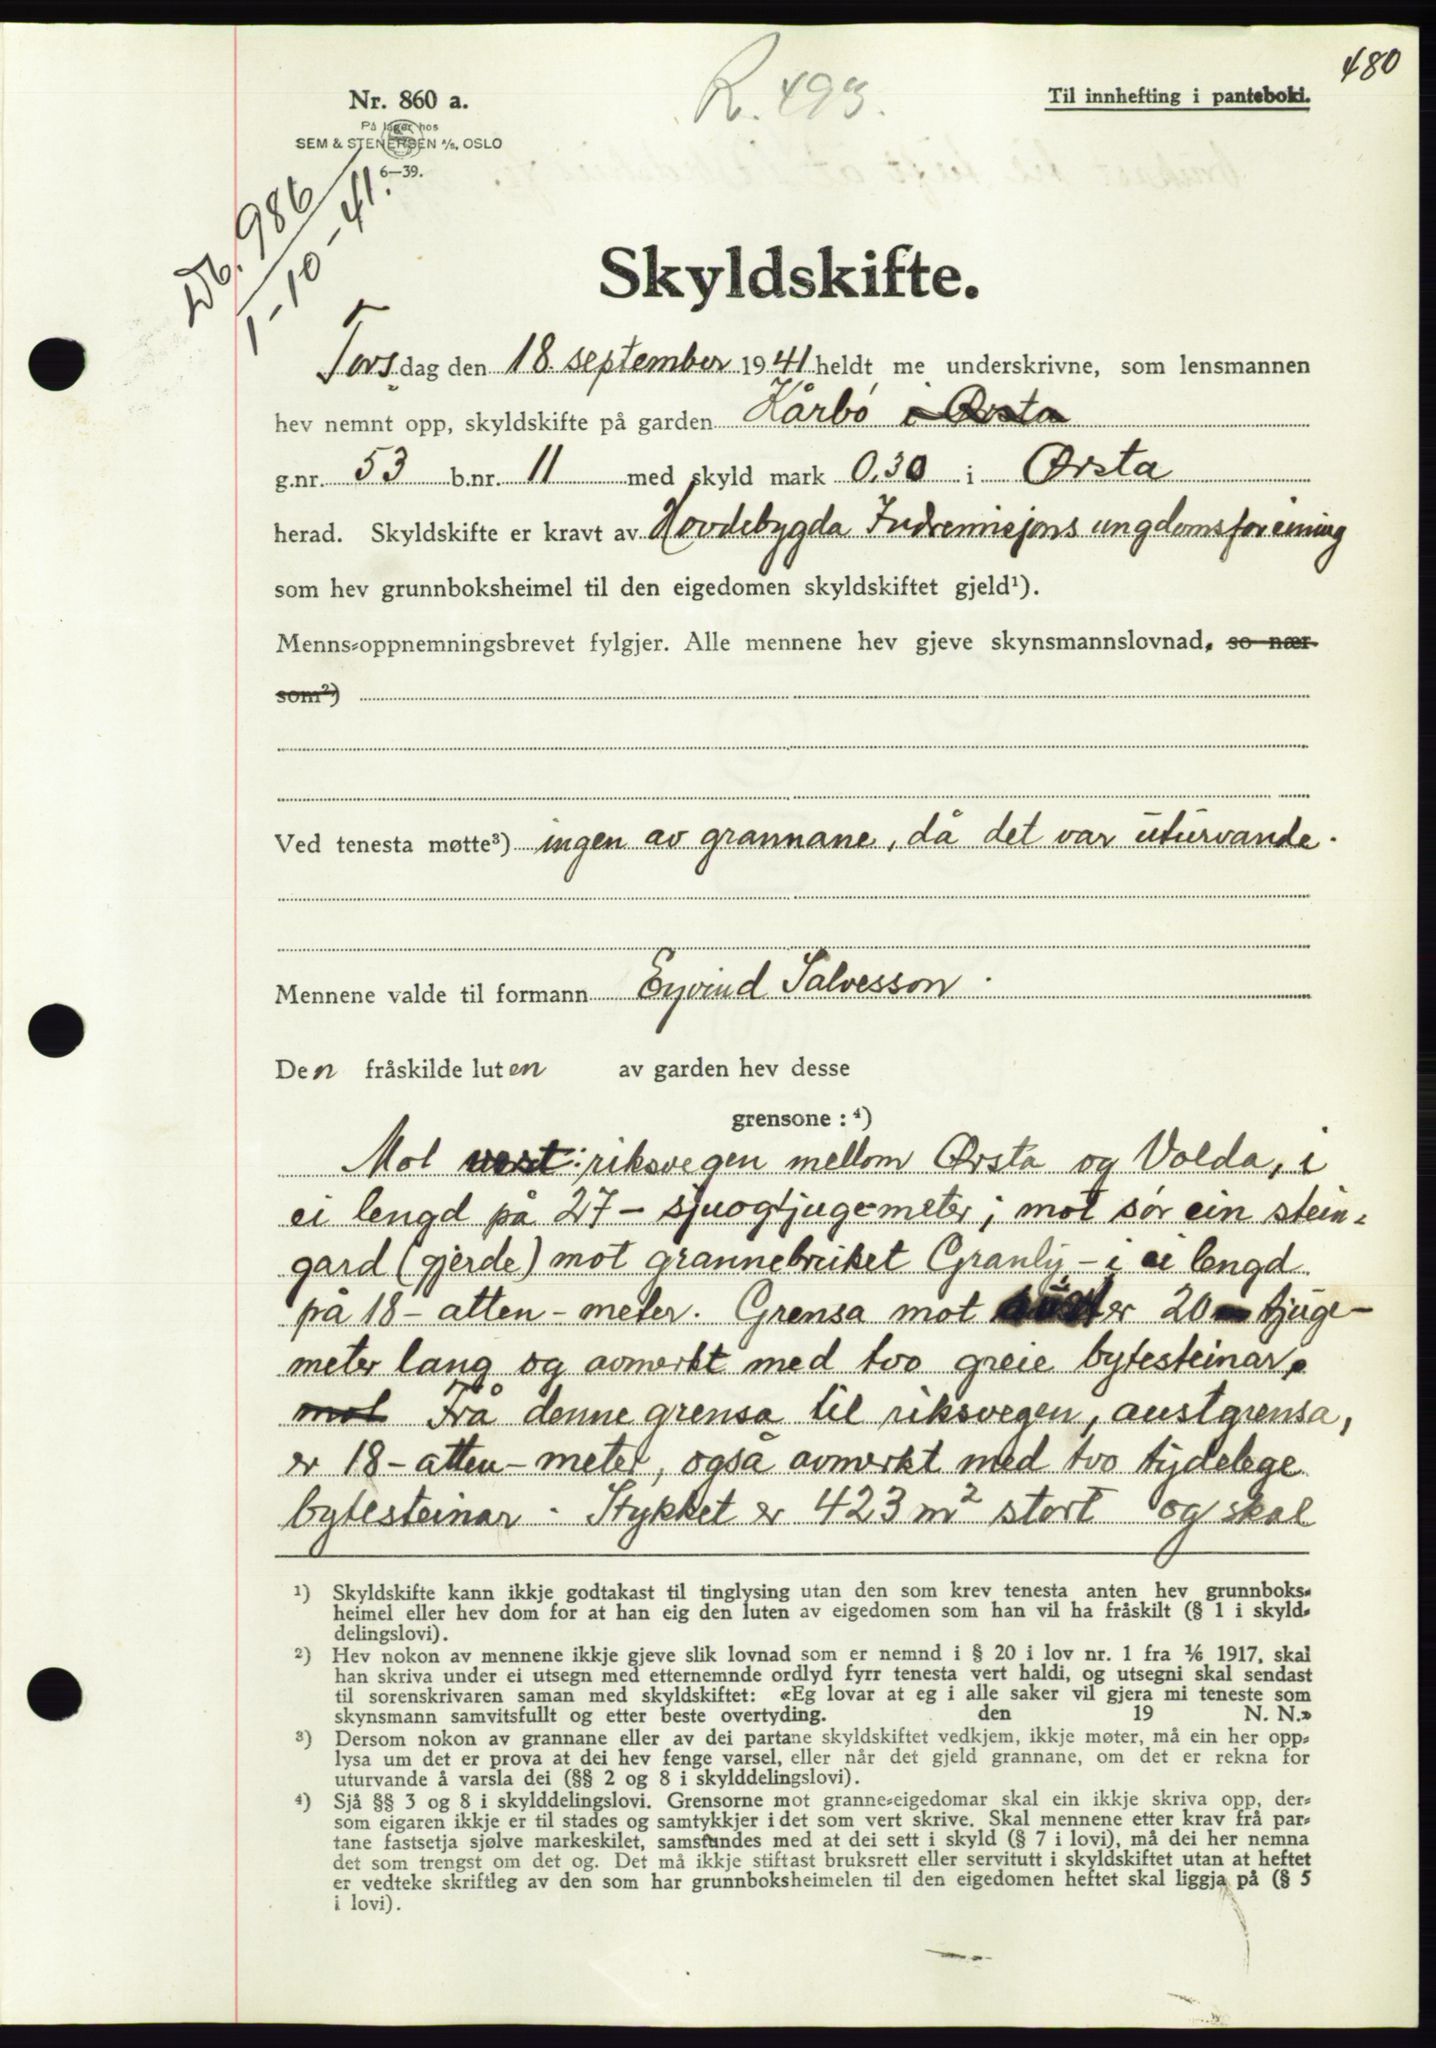 480
R. 493.
Nr. 860 a.
Til innhefting i panteboki.
På lager hos
SEM & STENERSEN A/S, OSLO
6—39.
Db. 986
1-10-41.
Skyldskifte.
Torsdag den 18. september 1941 heldt me underskrivne, som lensmannen
hev nemnt opp, skyldskifte på garden Kårbó i Ørsta
g.nr. 53 b.nr. 11 med skyld mark 0,30 i Ørsta
herad. Skyldskifte er kravt av Hovdebygda Indremisjons ungdomsforeining
som hev grunnboksheimel til den eigedomen skyldskiftet gjeld¹).
Menns-oppnemningsbrevet fylgjer. Alle mennene hev gjeve skynsmannslovnad, so nær
som²)
Ved tenesta møtte³) ingen av grannane, då det var uturvande.
Mennene valde til formann Eyvind Salvesson.
Den fråskilde luten av garden hev desse
grensone: ⁴)
Mot vest: riksvegen mellom Ørsta og Volda, i
ei lengd på 27 – sjuogtjuge-meter; mot sør ein stein-
gard (gjerde) mot grannebruket Granly – i ei lengd
på 18 – atten – meter. Grensa mot aust er 20 – tjuge –
meter lang og avmerkt med tvo greie bytesteinar.
mot Frå denne grensa til riksvegen, austgrensa,
er 18 – atten – meter, også avmerkt med tvo tydelege
bytesteinar. Stykket er 423 m² stort og skal
¹) Skyldskifte kann ikkje godtakast til tinglysing utan den som krev tenesta anten hev grunnboks-
heimel eller hev dom for at han eig den luten av eigedomen som han vil ha fråskilt (§ 1 i skyld-
delingslovi).
²) Hev nokon av mennene ikkje gjeve slik lovnad som er nemnd i § 20 i lov nr. 1 fra 1/6 1917, skal
han skriva under ei utsegn med etternemnde ordlyd fyrr tenesta vert haldi, og utsegni skal sendast
til sorenskrivaren saman med skyldskiftet: «Eg lovar at eg i alle saker vil gjera mi teneste som
skynsmann samvitsfullt og etter beste overtyding. den 19 N. N.»
³) Dersom nokon av grannane eller av dei partane skyldskiftet vedkjem, ikkje møter, må ein her opp-
lysa um det er prova at dei hev fenge varsel, eller når det gjeld grannane, om det er rekna for
uturvande å varsla dei (§§ 2 og 8 i skylddelingslovi).
⁴) Sjå §§ 3 og 8 i skylddelingslovi. Grensorne mot granne-eigedomar skal ein ikkje skriva opp, der-
som eigaren ikkje er til stades og samtykkjer i det som vert skrive. Skal mennene etter krav frå par-
tane fastsetja sjølve markeskilet, samstundes med at dei sett i skyld (§ 7 i lovi), må dei her nemna
det som trengst om det og. Det må ikkje stiftast bruksrett eller servitutt i skyldskiftet utan at heftet
er vedteke skriftleg av den som har grunnboksheimelen til den eigedomen heftet skal liggja på (§ 5
i lovi).